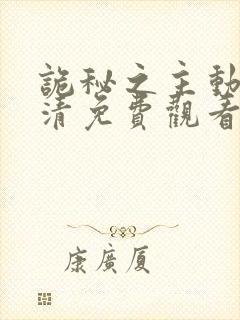 詭秘之主動
清免費觀看
康廣厦